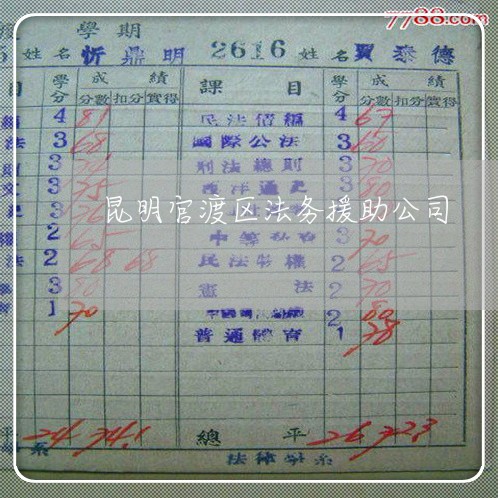 7788.com
學期
姓名 忻鼎明 2616 姓名 賈泰德
目 學分 成績 課目 學分 成績
分數 扣分 實得 分數 扣分 實得
4 81 民法債編 4 67
法 3 68 國際公法 3 60
3 刑法總則 3 70
3 75 西洋通史 3 80
昆明官渡区法务援助公司
2 65 3 70
法 2 68 68 民法物權 2 65
3 80 憲法 2 70
1 70 2 80
普通體育 1 78
平 24 74.1 總平 26 72.3
系 法律學系